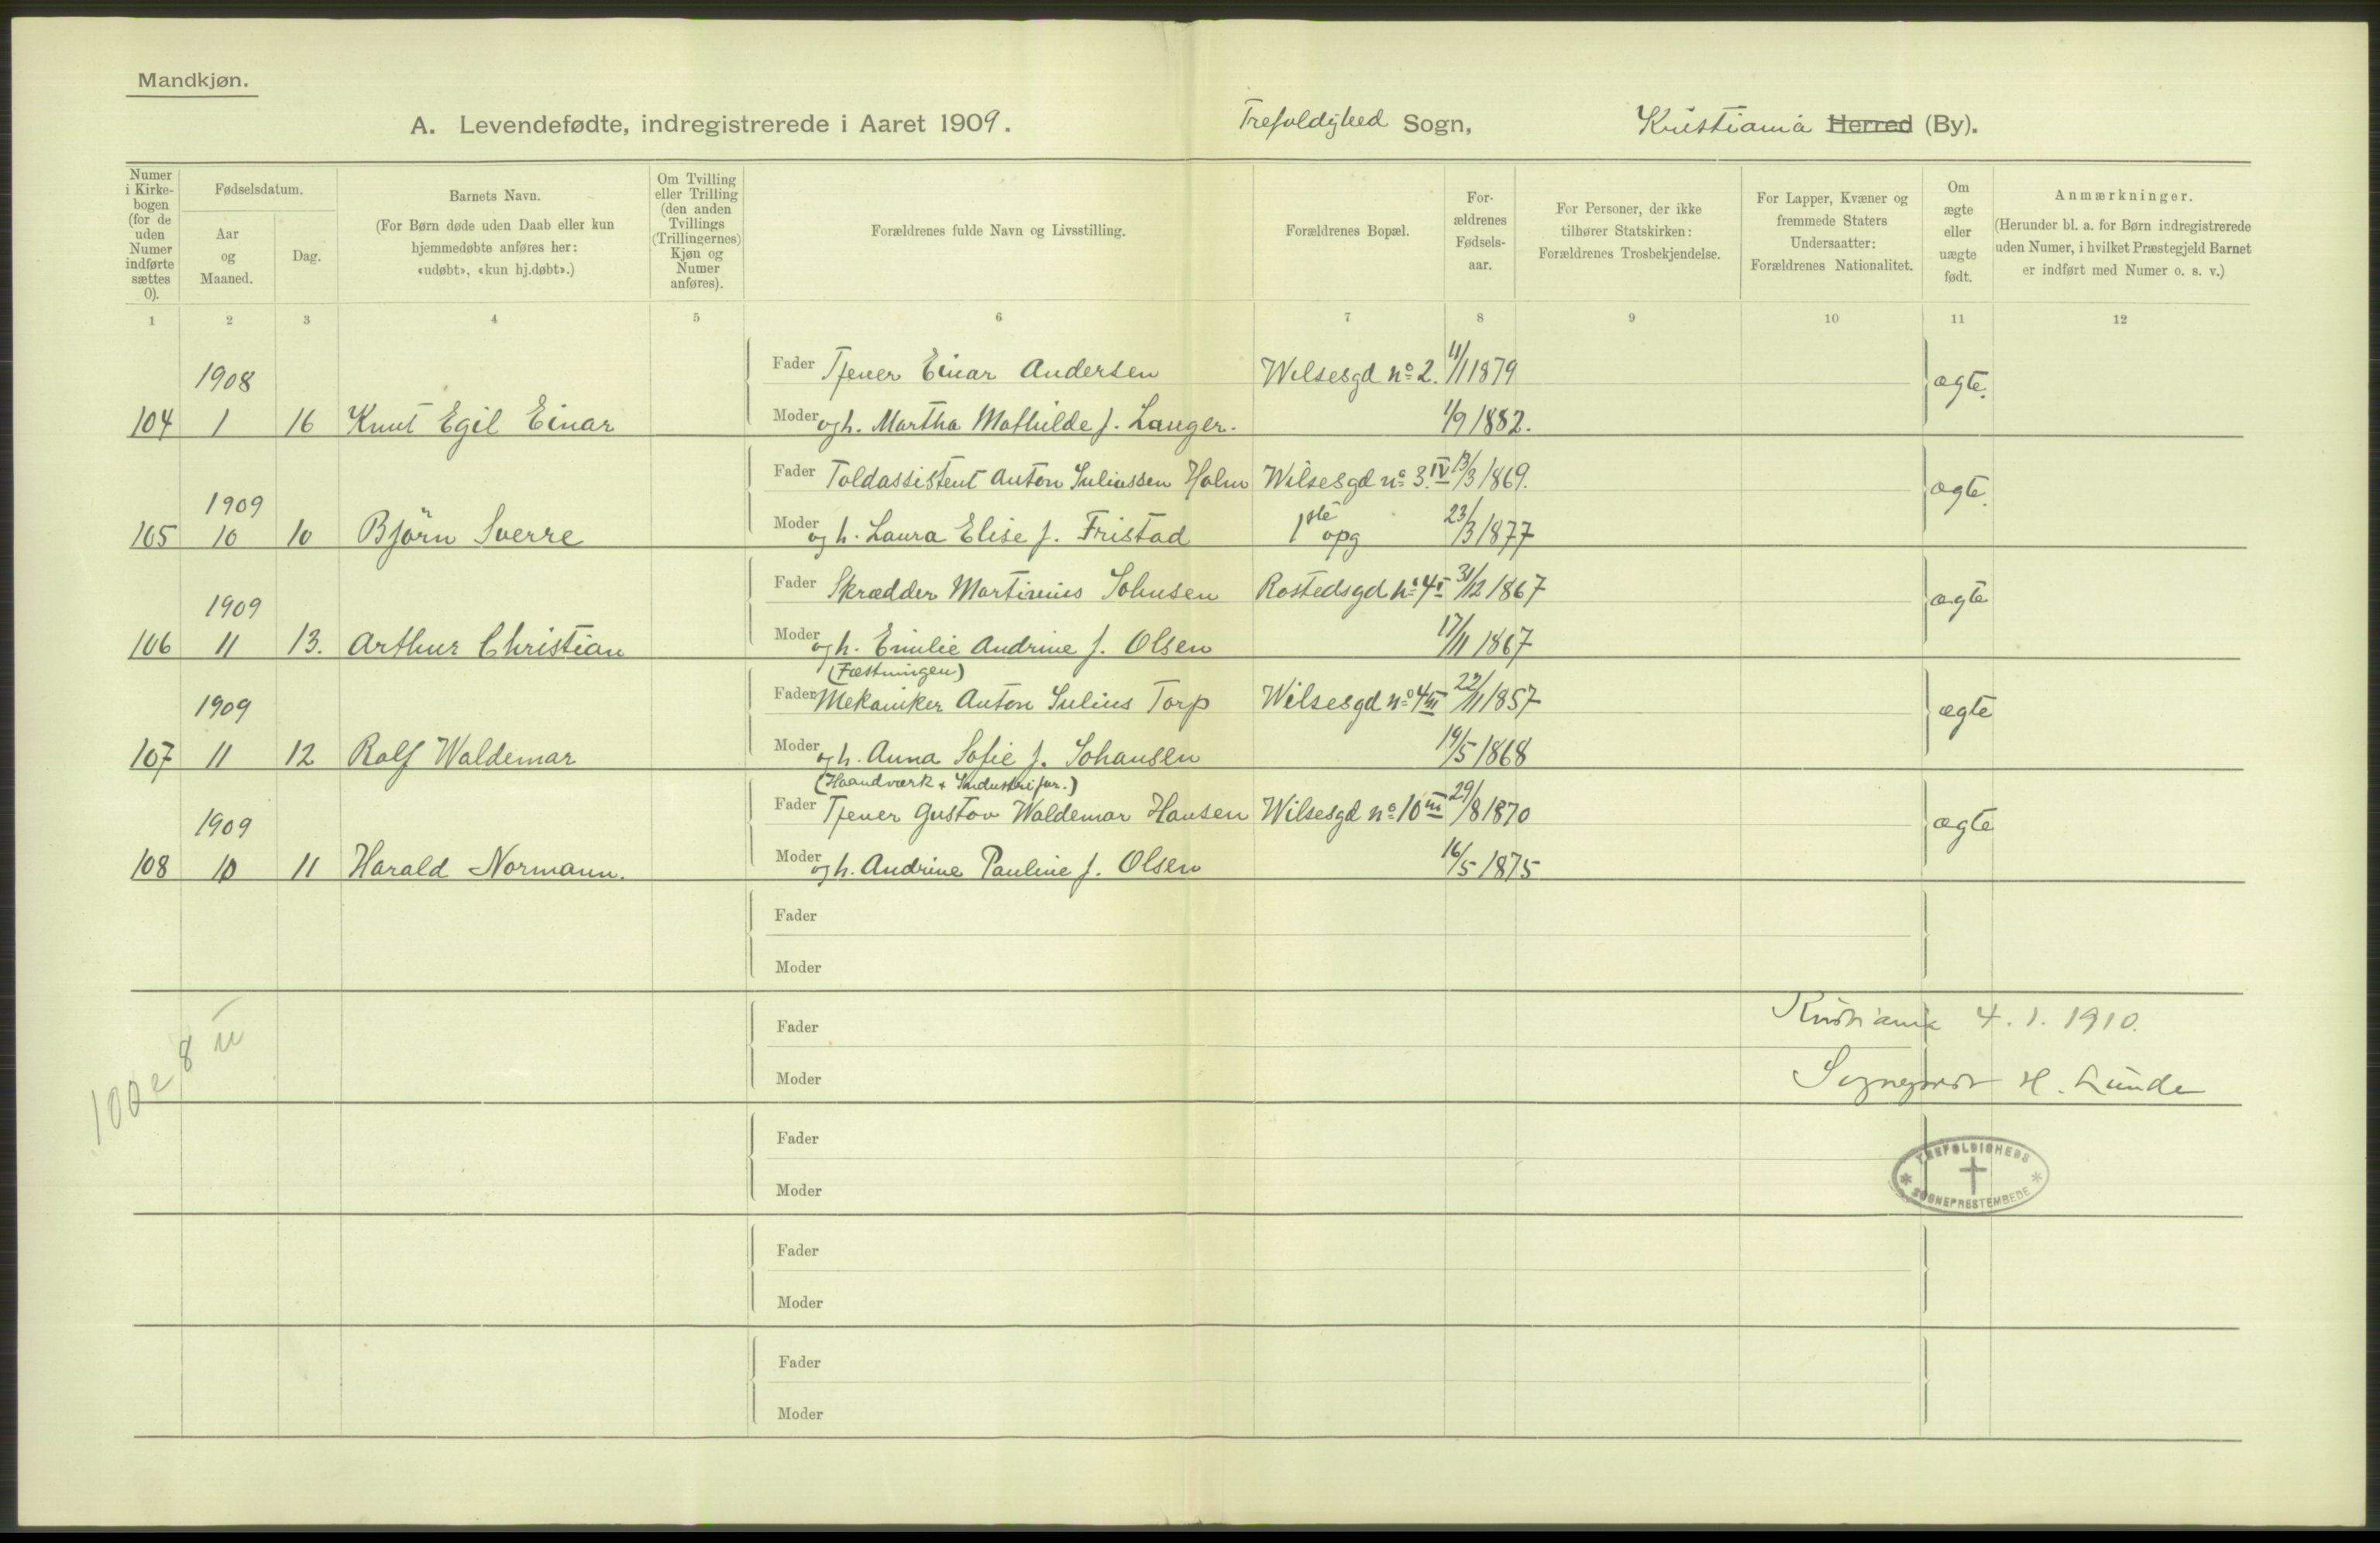 Mandkjøn.
A. Levendefødte, indregistrerede i Aaret 1909. Trefoldighed Sogn, Kristiania Herred (By).
Numer i Kirkebogen (for de uden Numer indførte sættes 0).
Fødselsdatum.
Aar og Maaned.
Dag.
Barnets Navn.
(For Børn døde uden Daab eller kun hjemmedøbte anføres her: «udøbt», «kun hj.døbt».)
Om Tvilling eller Trilling (den anden Tvillings (Trillingernes) Kjøn og Numer anføres).
Forældrenes fulde Navn og Livsstilling.
Forældrenes Bopæl.
For-
ældrenes
Fødsels-
aar.
For Personer, der ikke
tilhører Statskirken:
Forældrenes Trosbekjendelse.
For Lapper, Kvæner og
fremmede Staters
Undersaatter:
Forældrenes Nationalitet.
Om
ægte
eller
uægte
født.
Anmærkninger.
(Herunder bl. a. for Børn indregistrerede
uden Numer, i hvilket Præstegjeld Barnet
er indført med Numer o. s. v.)
1 2 3 4 5 6 7 8 9 10 11 12
1908 Fader Tjener Einar Andersen Wilsesgd no 2. 11/11 1879 ægte.
104 1 16 Knut Egil Einar Moder og h. Martha Mathilde f. Langer. 1/9 1882.
1909 Fader Toldassistent Anton Juliussen Holm Wilsesgd no 3. IV 13/3 1869. ægte.
105 10 10 Björn Sverre Moder og h. Laura Elise f. Fristad 1ste opg 23/3 1877
1909 Fader Skrædder Martinius Johnsen Rostedsgd no 4 I 31/12 1867 ægte
106 11 13. Arthur Christian Moder og h. Emilie Andrine f. Olsen 17/11 1867
(Fæstningen)
1909 Fader Mekaniker Anton Julius Torp Wilsesgd no 4 III 22/11 1857 ægte
107 11 12 Rolf Waldemar Moder og h. Anna Sofie f. Johansen 19/5 1868
(Haandværk + Industrifor.)
1909 Fader Tjener Gustav Waldemar Hansen Wilsesgd no 10 III 29/8 1870 ægte
108 10 11 Harald Normann. Moder og h. Andrine Pauline f. Olsen 16/5 1875
Fader
Moder
Fader Kristiania 4. 1. 1910.
Moder Sogneprest H. Lunde
Fader
Moder
TREFOLDIGHEDS
SOGNEPRESTEMBEDE
Fader
Moder
Fader
Moder